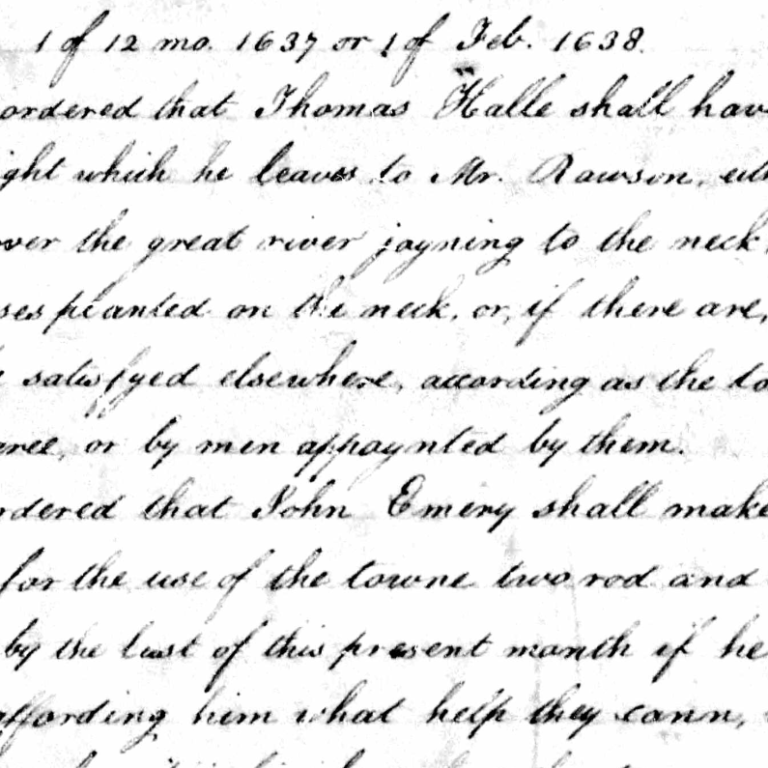 1 of 12 mo. 1637 or 1 of Feb. 1638.
ordered that Thomas Halle shall have
ight which he leaves to Mr. Rawson,
over the great river joyning to the neck,
ses planted on the neck, or, if there are,
satisfyed elsewhere, according as the to
gree, or by men appoynted by them.
rdered that John Emery shall make
for the use of the towne two rod and
by the last of this present month if he
affording him what help they cann,